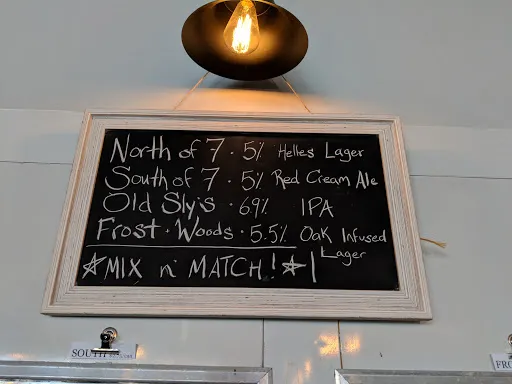 North of 7 · 5% Helles Lager
South of 7 · 5% Red Cream Ale
Old Sly's · 6.9% IPA
Frost · Woods · 5.5% Oak Infused
Lager
☆MIX n' MATCH!☆
SOUTH
FRO